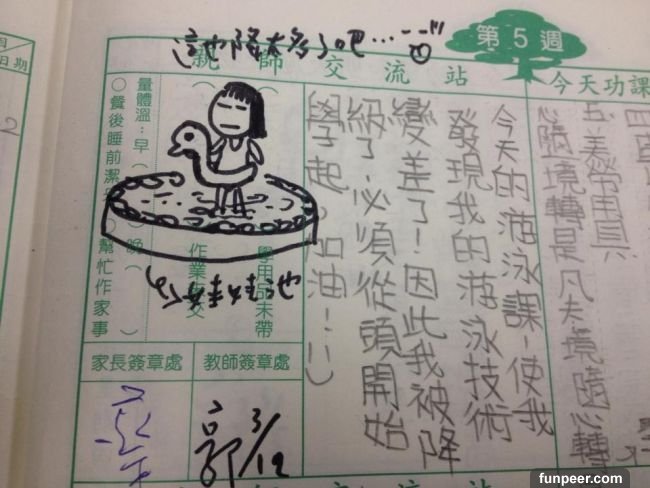 第5週
這也降太多了吧…
親師交流站
今天功課
日期
美勞用具
心隨境轉是凡夫境隨心轉
今天的游泳課,使我
發現我的游泳技術
變差了!因此我被降
級了,必須從頭開始
學起。加油!
量體溫:早( )晚( )
作業未交
學用品未帶
幫忙作家事
家長簽章處
教師簽章處
郭 3/12
funpeer.com